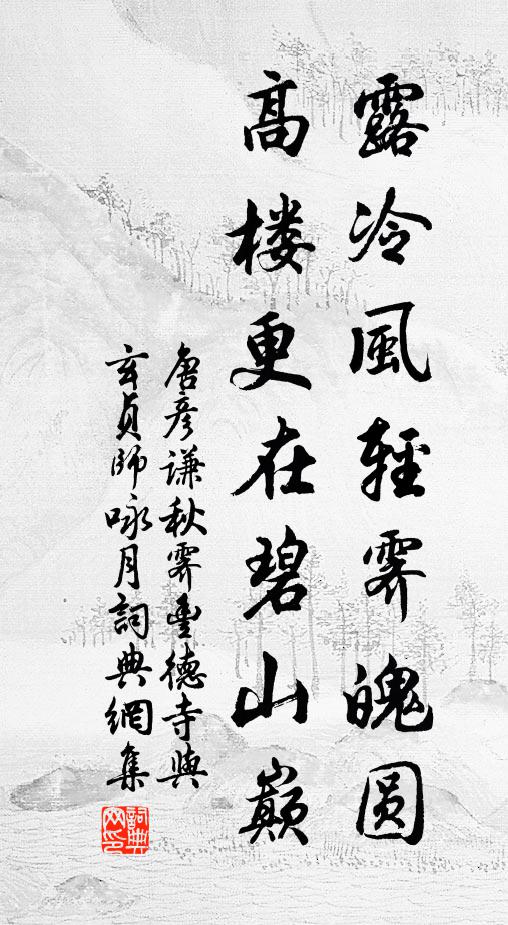 露冷風輕霽魄圆
高楼更在碧山巔
唐彥谦秋霽豊德寺與
玄貞師咏月詞典網集
詞典网印